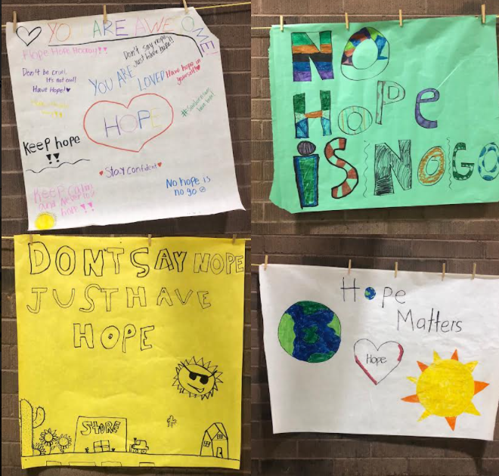 YO ARE AWESOME
Keep Hope Going!!
Don't say nope
just have hope!!
Don't be cruel
it's not cool!
Have Hope!
YOU ARE LOVED
Have hope in
yourself
HOPE
Keep hope
!!
Stay Confident
No hope is
no go
NO
HOPE
IS NO GO
DON'T SAY NOPE
JUST HAVE
HOPE
STORE
Hope
Matters
Hope